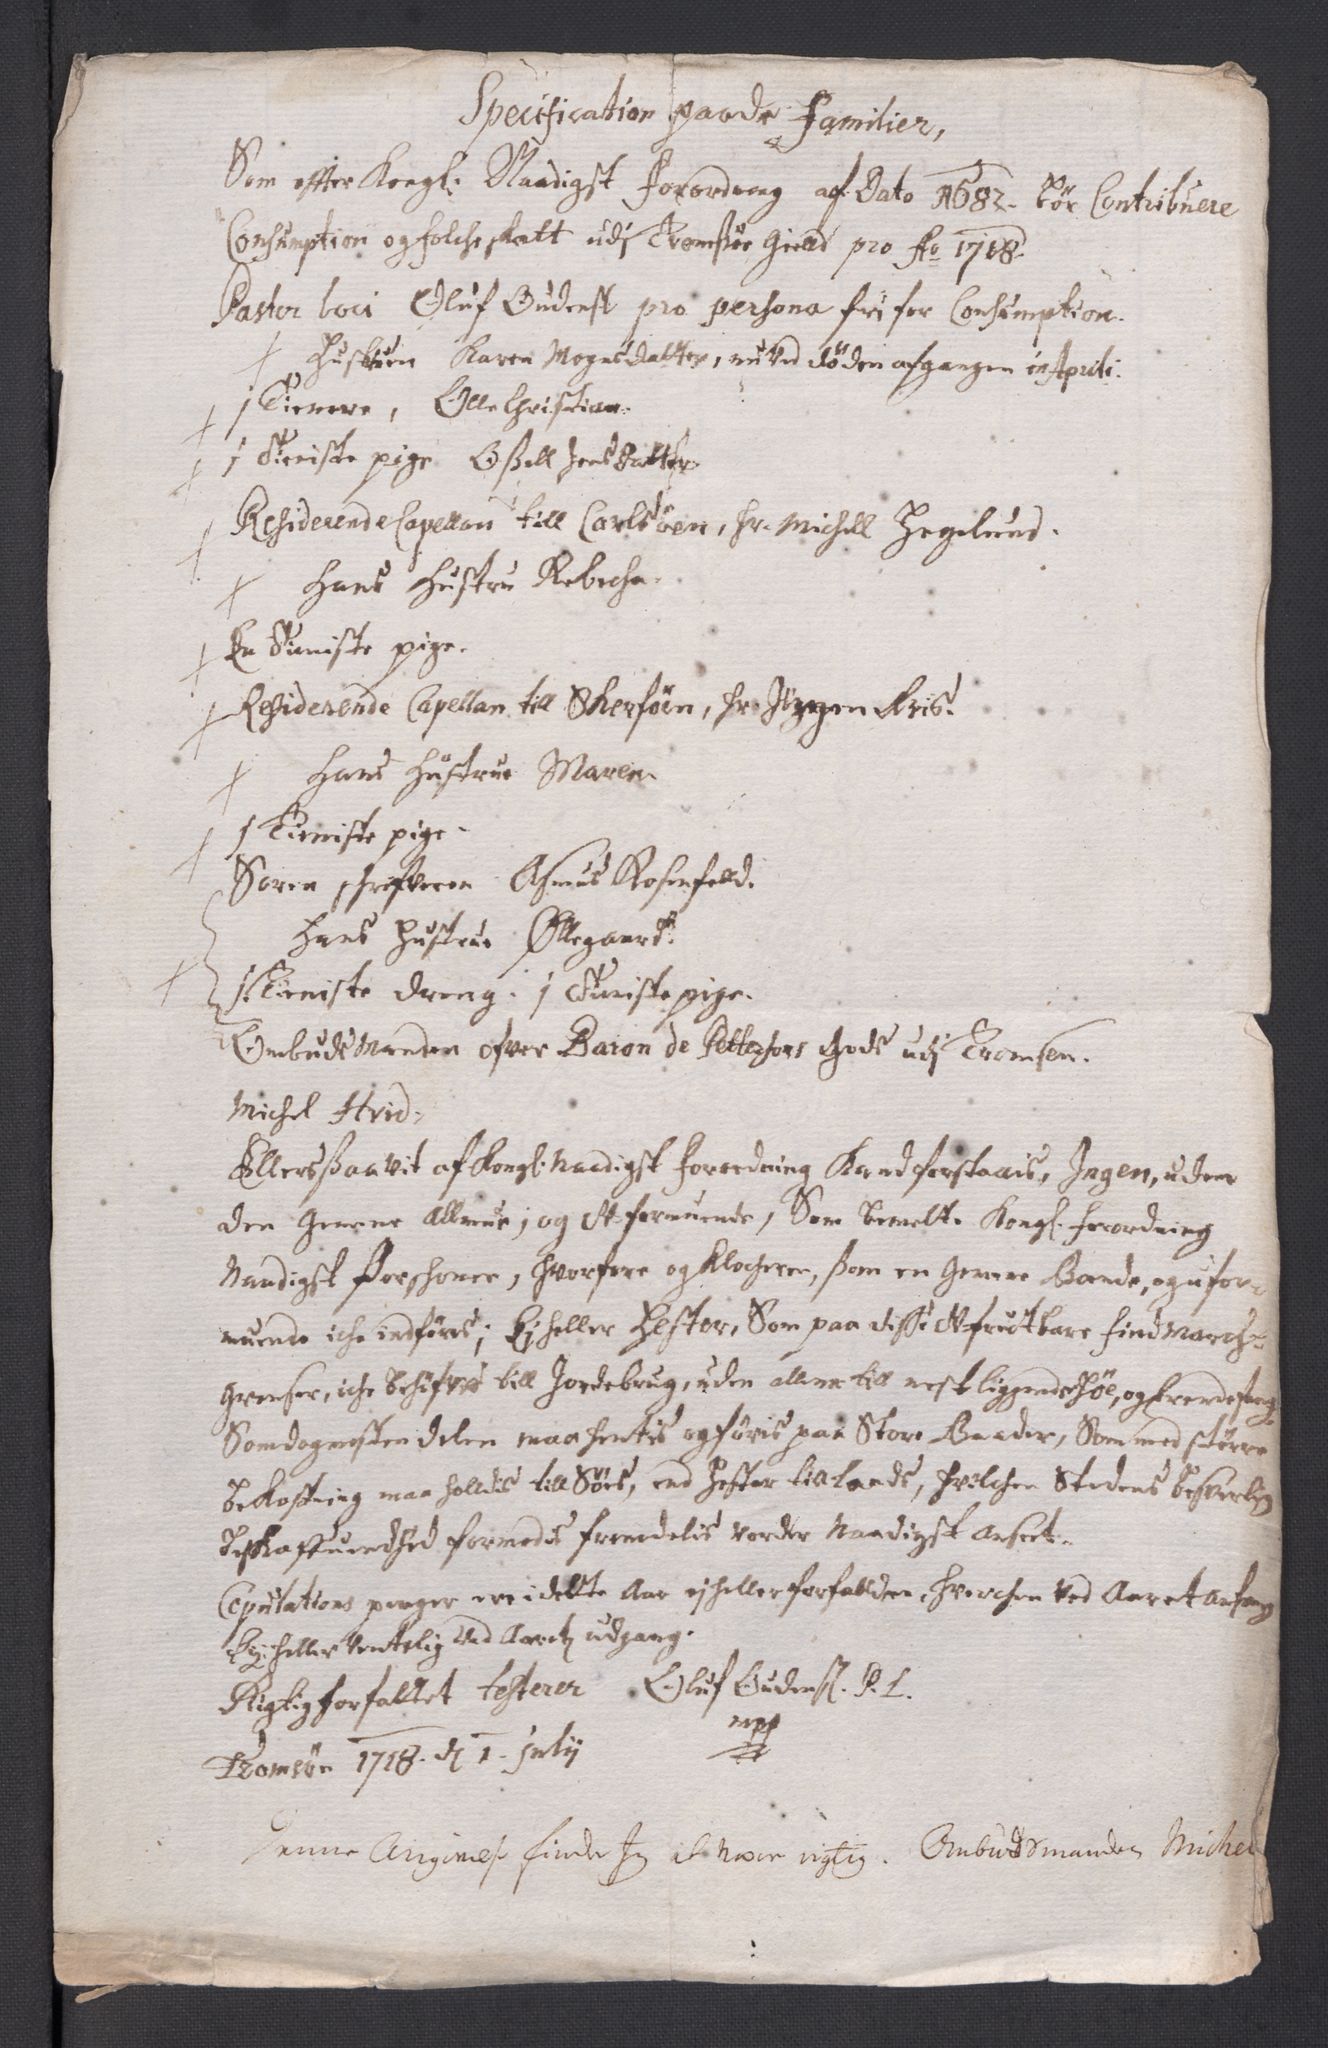 Specification paa de Familier,
Som effter Kongl: Naadigst Forordning af Dato 1682. bör Contribuere
Consumption og folcheskatt udj Tromsöe Gield pro Ao 1718.
Pastor loci Oluf Gudenss: pro persona fri for Consumption.
Hustruen Karen Mognsdatter, nu ved döden afgangen in Aprili.
1 Tienere, Olle Christian.
1 Tieniste pige Ossell Jensdatter
Residerende Capellan till Carlsöen, hr. Michell Hegelund.
Hans Hustru Rebecha.
En Tieniste pige.
Residerende Capellan till Skerföen, hr. Jörgen Friis.
Hans Hustrue Maren.
1 Tieniste pige.
Soren schrifveren Asmus Rosenfeld.
Hans Hustrue Øllegaard.
1 Tieniste dreng. 1 Tieniste pige.
Ombudsmanden ofver Baron de Pettersens Gods udj Tromsen.
Michel Hvid.
Ellers saavit af Kongl: Naadigst forordning Kand forstaais, Ingen, uden
den Gemene Allmue, og Uformuende, Som bemelte Kongl. forordning
Naadigst forschoner, hvorfore og Klocheren, som en Gemene Bonde, og ufor-
muende iche indföres; Ej heller Hester, Som paa disse Ufrugtbare Findmarch-
Grenser, iche behöfves till Jordebrug, uden allene till nest liggende
Som dog mesten delen maa hentis og föris paa Store Baader, Som med större
bekostning maa holdis till Söes, end Hester till Lands, hvilchen Stedens besverlig
beskaffuenhed formodis fremdelis vorder Naadigst anseet.
Copulations penger ere i dette Aar ej heller forfallden, hverchen ved Aaret anfang
Ej heller ventelig ved Aaretz udgang.
Rigtig forfattet testerer Oluf Gudenss. P. L.
mpp
Tromsön 1718. d 1. July
Denne finder Jeg at være rigtig. Ombudsmanden Michel